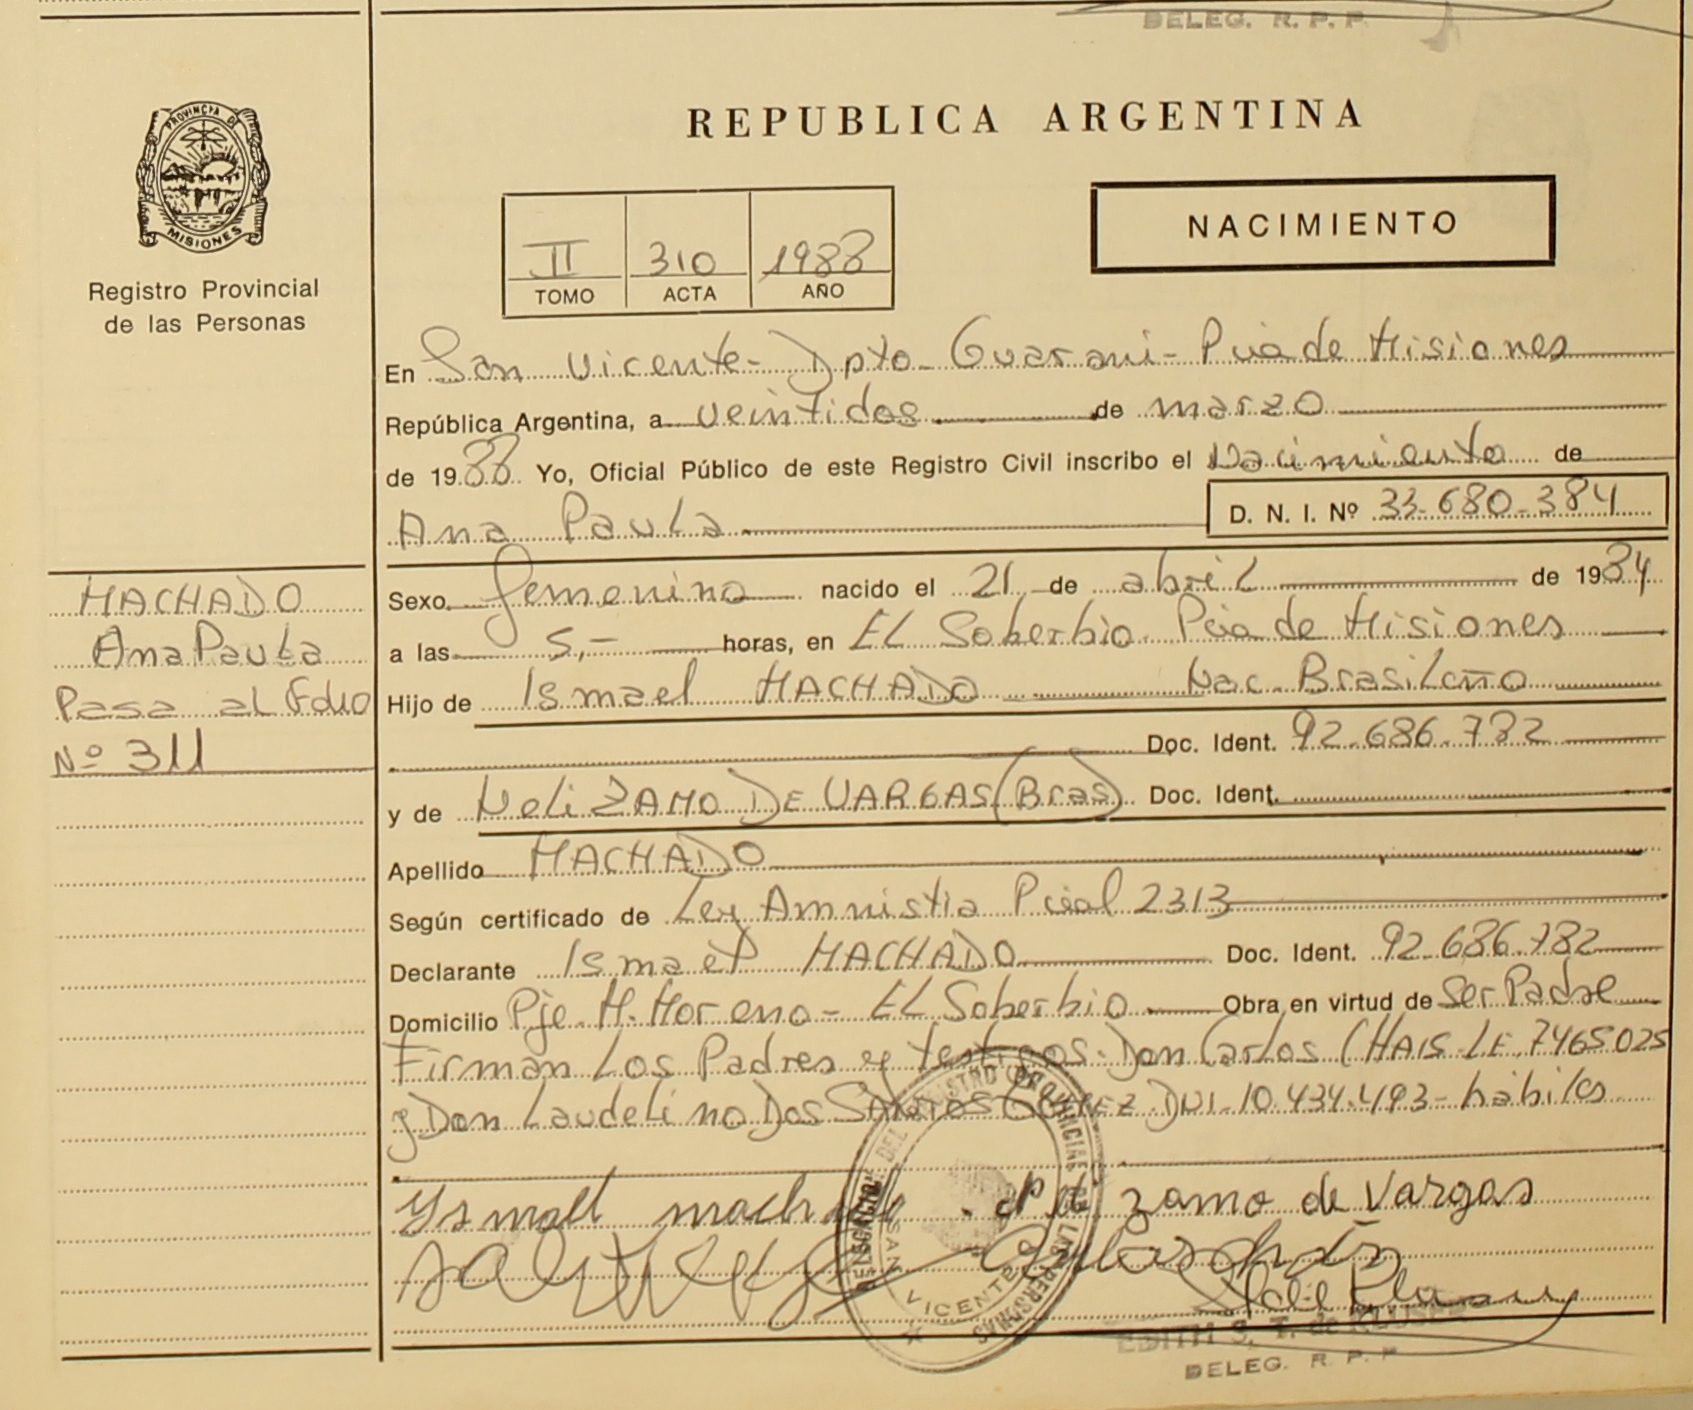 DELEG. R. P. P.
PROVINCIA DE
MISIONES
Registro Provincial
de las Personas
REPUBLICA ARGENTINA
NACIMIENTO
II 310 1988
TOMO ACTA AÑO
En San Vicente - Dpto - Guarani - Pcia de Misiones
República Argentina, a veintidos de marzo
de 1988 Yo, Oficial Público de este Registro Civil inscribo el Nacimiento de
Ana Paula D. N. I. Nº 33-680-384
MACHADO
Ana Paula
Pasa al Fdio
Nº 311
Sexo femenino nacido el 21 de abril de 1984
a las 5,- horas, en EL Soberbio Pcia de Misiones
Hijo de Ismael MACHADO Nac. Brasileño
Doc. Ident. 92.686.782
y de Neli ZAMO DE VARGAS (Bras) Doc. Ident.
Apellido MACHADO
Según certificado de Ley Amnistia Pcial 2313
Declarante Ismael MACHADO Doc. Ident. 92.686.782
Domicilio Pje. M. Moreno - EL Soberbio Obra en virtud de Ser Padre
Firman Los Padres y testigos. Don Carlos CHAIS LE. 7465025
y Don Laudelino Dos SANTOS DNI-10.434.493- hábiles
Ysmael machado zamo de Vargas
DELEGACION DEL REGISTRO PROVINCIAL DE LAS PERSONAS
SAN VICENTE
EDITH S. T. de KLUSER
DELEG. R. P. P.